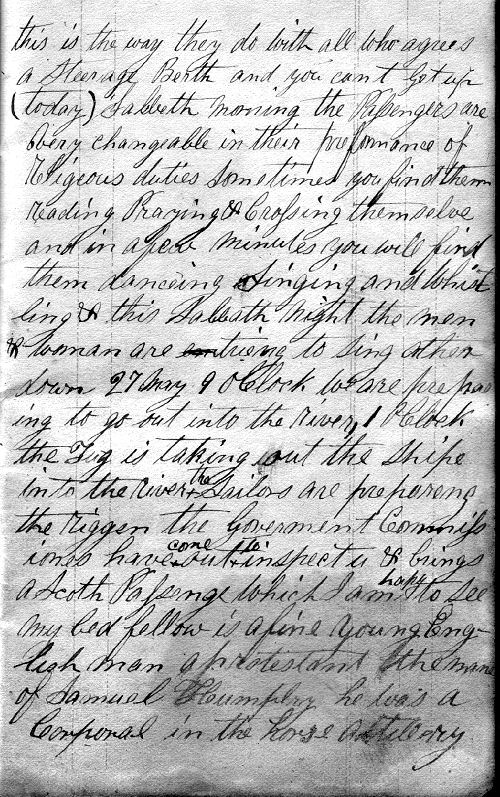 this is the way they do with all who agrees
a Steerage Berth and you cant Get up
(today) Sabbeth morning the Passengers are
very changeable in their preformance of
Religeous duties Sometimes you find them
reading Praying & Crossing themselve
and in a few minutes you will find
them danceing Singing and whist
ling & this Sabbath night the men
& woman are trieng to sing other
down 27 May 9 OClock we are prepar
ing to go out into the River, 1 OClock
the Tug is taking out the Shipe
into the River the Sailors are prepareng
the Riggen the Goverment Commiss
iones have come out to inspect u & brings
a Scoth Passenge which I am hapy to see
my bed fellow is a fine young Eng-
lish man a protestant the name
of Samuel Humphry he was a
Corporal in the horse Artilery